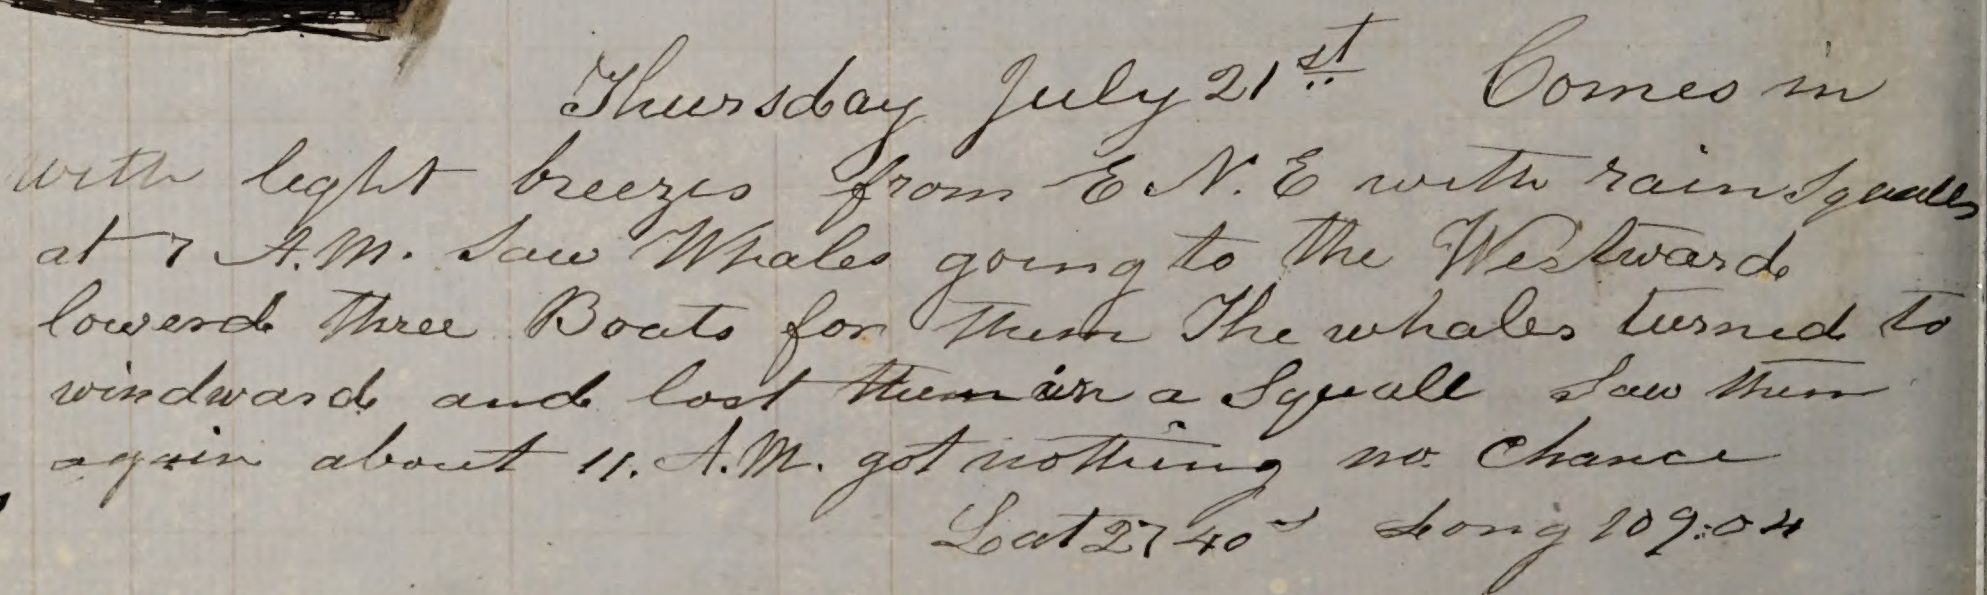 Thursday July 21st Comes in
with light breezes from E N. E with rain Squalls
at 7 A.M. Saw Whales going to the Westward
lowerd three Boats for them The whales turned to
windward and lost them in a Squall Saw them
again about 11. A.M. got nothing no chance
Lat 27 40 S Long 109:04